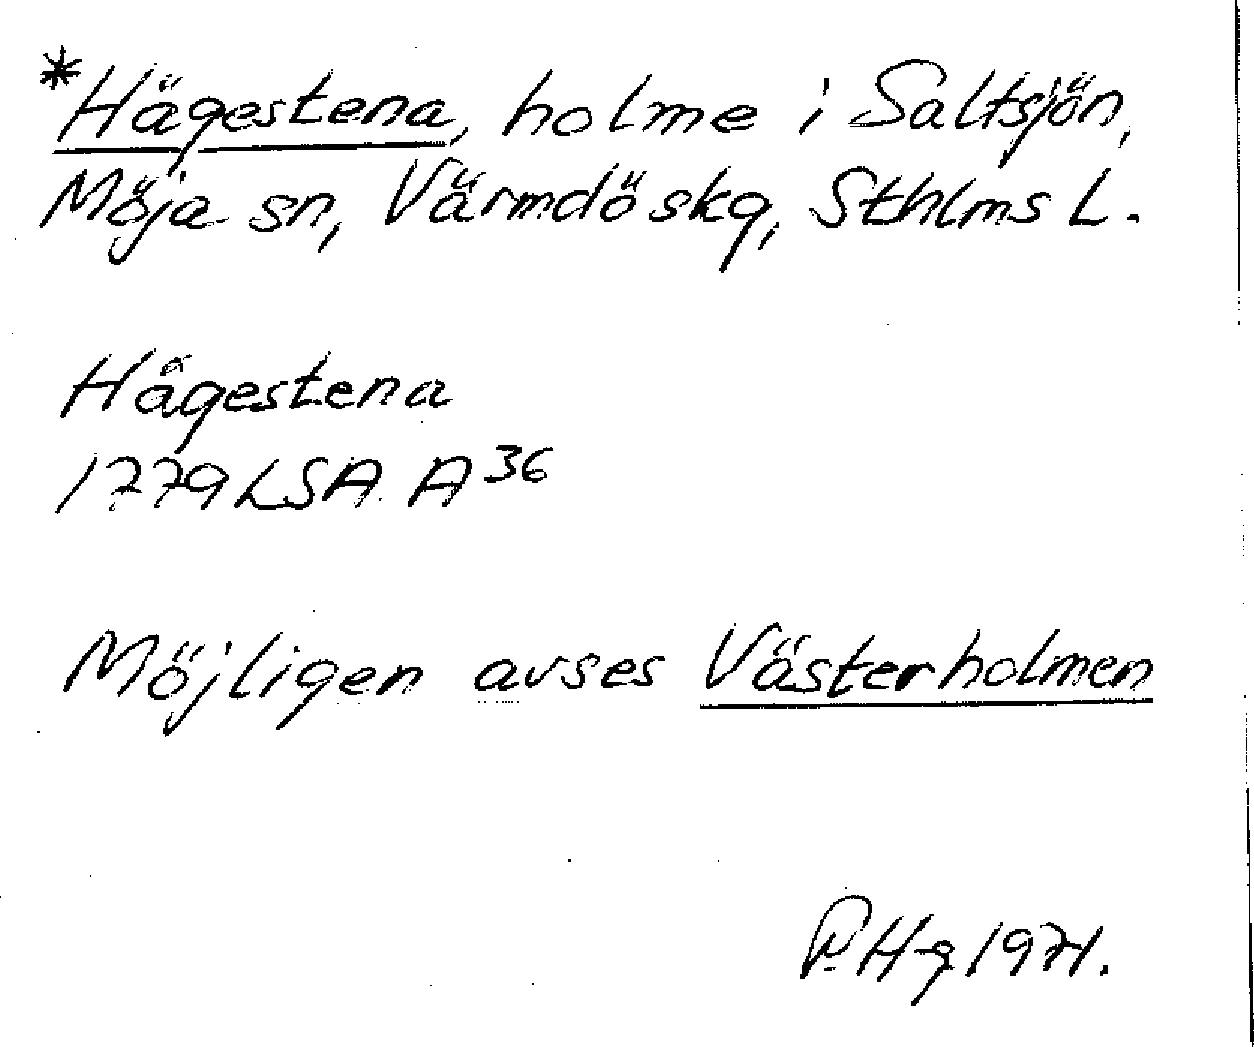 *Hägestena, holme i Saltsjön,
Möja sn, Värmdö skg, Sthlms L.
Hågestena
1779 LSA. A 36
Möjligen avses Västerholmen
P. Hg 1971.